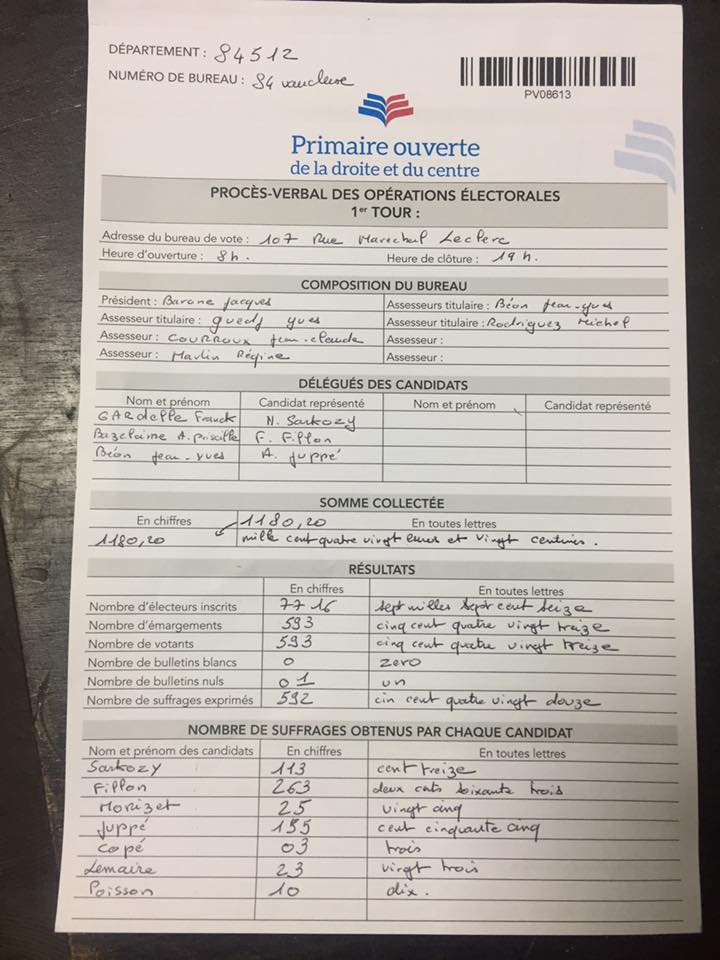 DÉPARTEMENT : 84512
NUMÉRO DE BUREAU : 84 vaucluse
PV08613
Primaire ouverte
de la droite et du centre
PROCÈS-VERBAL DES OPÉRATIONS ÉLECTORALES
1er TOUR :
Adresse du bureau de vote : 107 Rue Marechal Leclerc
Heure d'ouverture : 8h. Heure de clôture : 19h.
COMPOSITION DU BUREAU
Président : Barone Jacques Assesseurs titulaire : Béon Jean-yves
Assesseur titulaire : guedj yves Assesseur titulaire : Rodriguez Michel
Assesseur : COURROUX Jean-claude Assesseur :
Assesseur : Martin Régine Assesseur :
DÉLÉGUÉS DES CANDIDATS
Nom et prénom Candidat représenté Nom et prénom Candidat représenté
GARdelle Franck N. Sarkozy
Bazelaine A. priscille F. Fillon
Béon Jean-yves A. Juppé
SOMME COLLECTÉE
En chiffres 1180,20 En toutes lettres
1180,20 mille cent quatre vingt euros et vingt centimes.
RÉSULTATS
En chiffres En toutes lettres
Nombre d'électeurs inscrits 7716 sept milles sept cent seize
Nombre d'émargements 593 cinq cent quatre vingt treize
Nombre de votants 593 cinq cent quatre vingt treize
Nombre de bulletins blancs 0 zero
Nombre de bulletins nuls 01 un
Nombre de suffrages exprimés 592 cin cent quatre vingt douze
NOMBRE DE SUFFRAGES OBTENUS PAR CHAQUE CANDIDAT
Nom et prénom des candidats En chiffres En toutes lettres
Sarkozy 113 cent treize
Fillon 263 deux cents soixante trois
Morizet 25 vingt cinq
Juppé 155 cent cinquante cinq
Copé 03 trois
Lemaire 23 vingt trois
Poisson 10 dix.